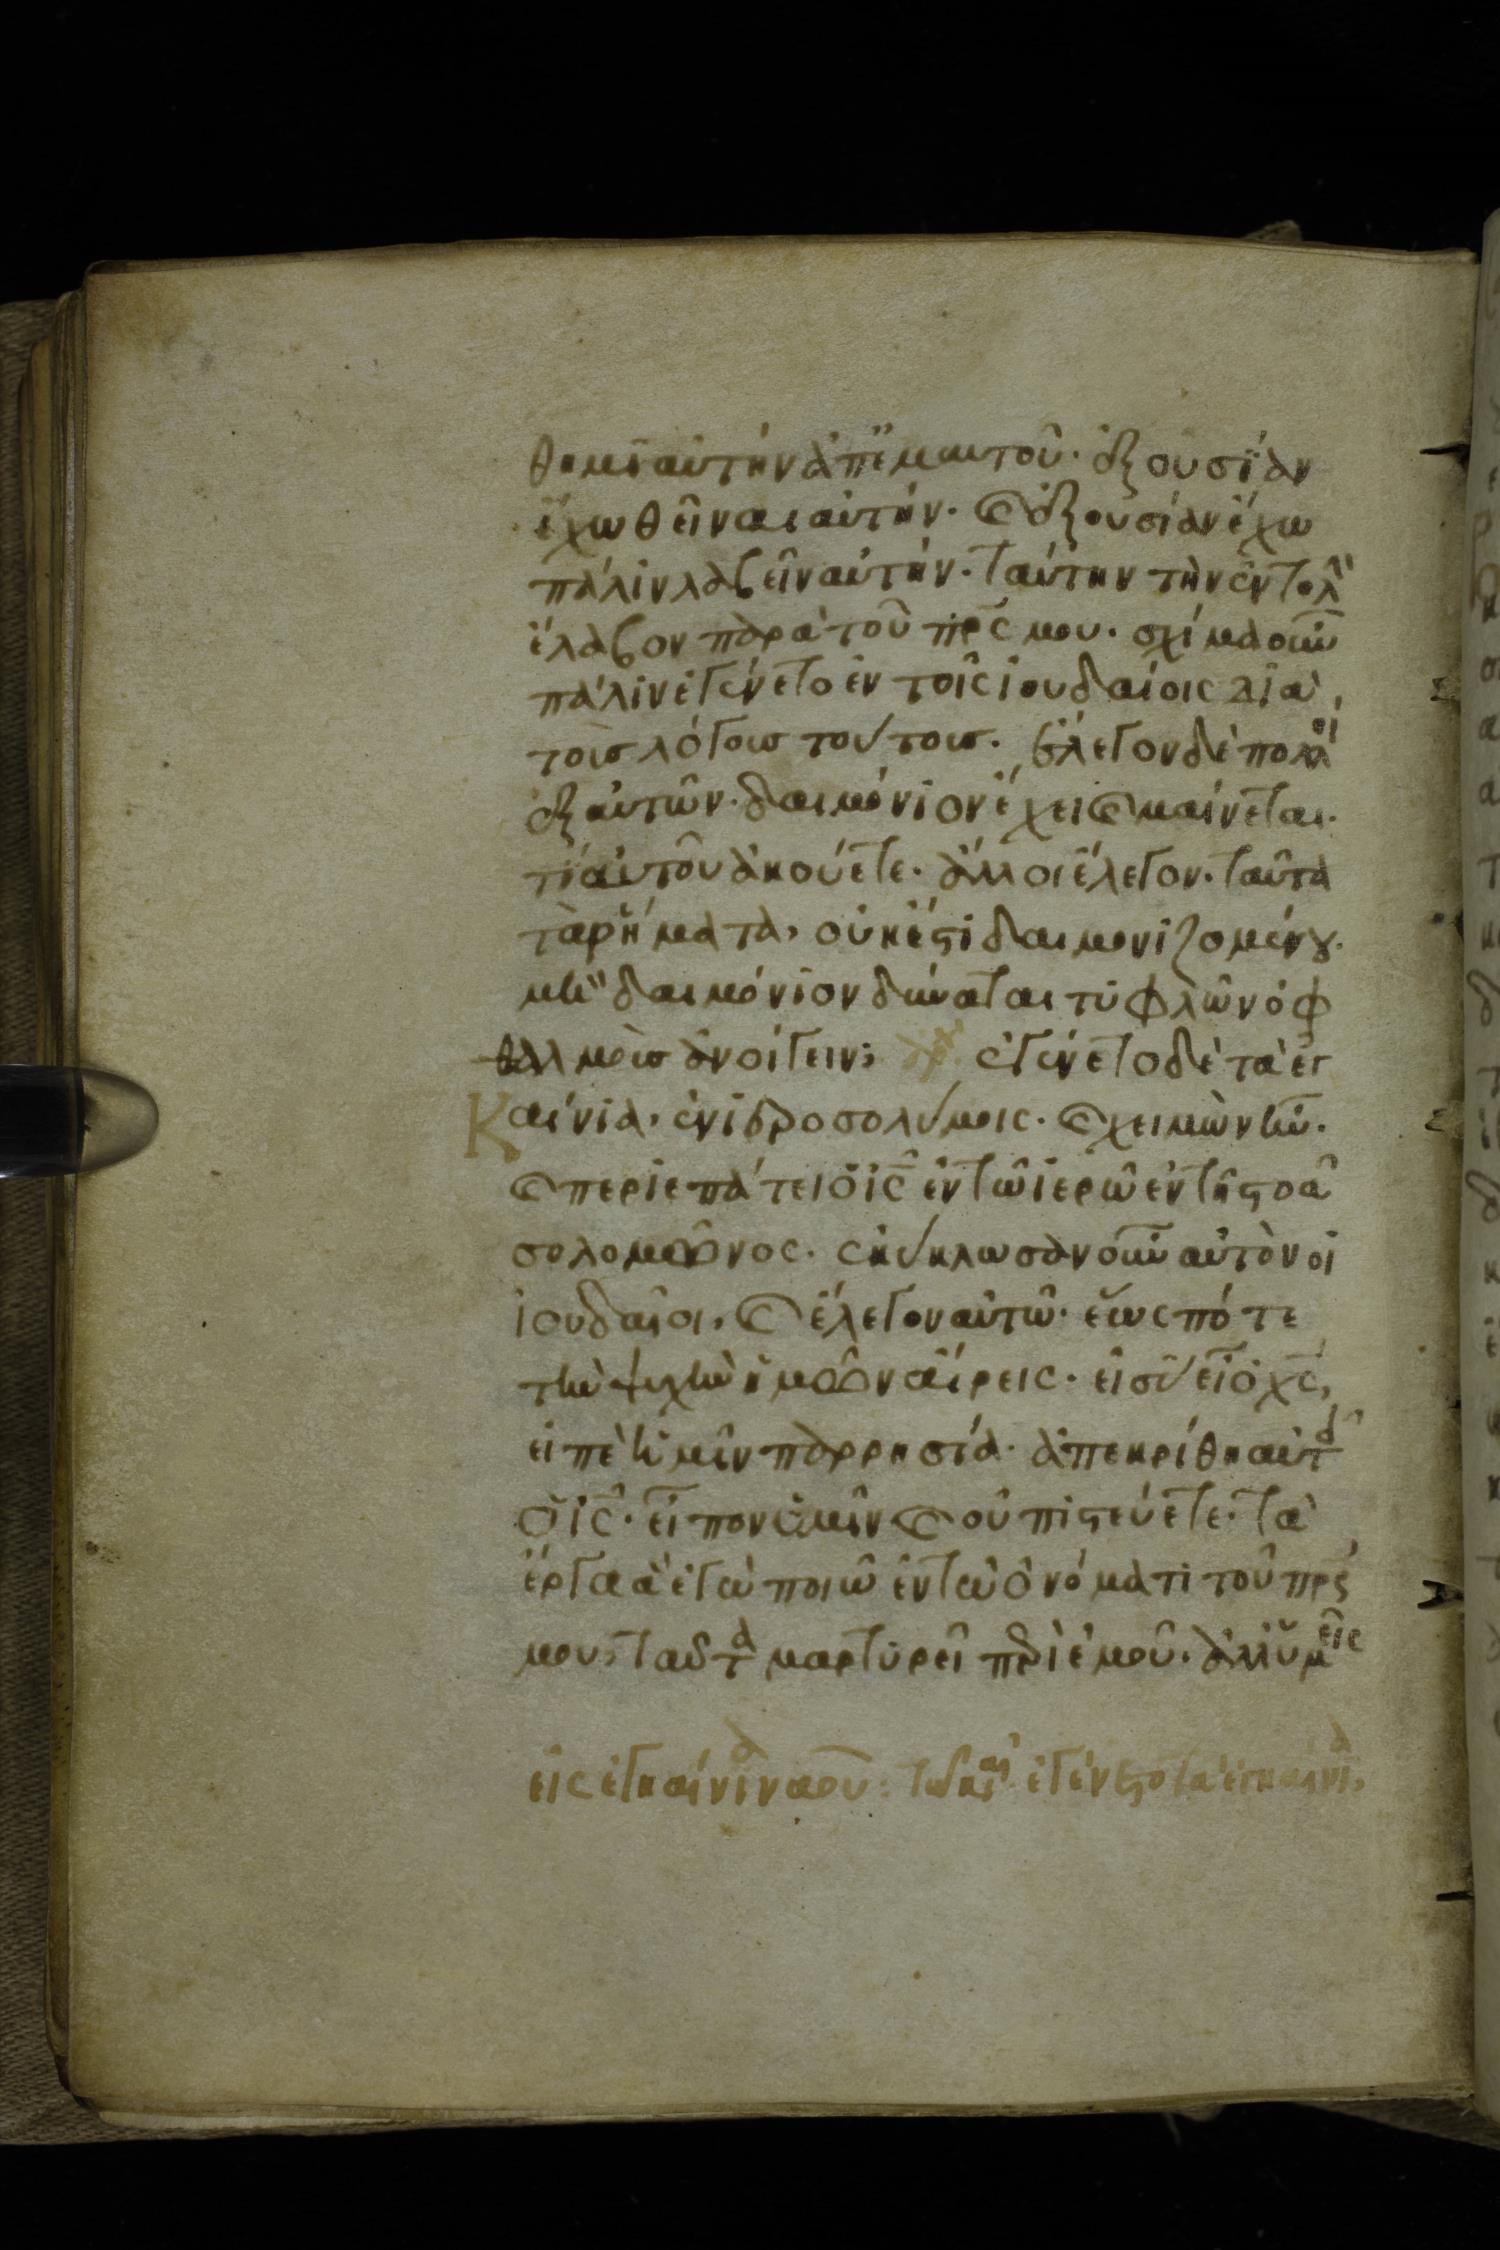 θημι αὐτὴν ἀπ' ἐμαυτοῦ. ἐξουσίαν
ἔχω θεῖναι αὐτήν. καὶ ἐξουσίαν ἔχω
πάλιν λαβεῖν αὐτήν. ταύτην τὴν ἐντολ
ἔλαβον παρὰ τοῦ πρς μου. σχίμα οὖν
πάλιν ἐγένετο ἐν τοῖς ἰουδαίοις διὰ
τοὺς λόγους τούτους. ἔλεγον δὲ πολλοὶ
ἐξ αὐτῶν. δαιμόνιον ἔχει καὶ μαίνεται.
τί αὐτοῦ ἀκούετε. ἄλλοι ἔλεγον. ταῦτα
τὰ ῥήματα, οὐκ ἔστι δαιμονιζομένου.
μὴ δαιμόνιον δύναται τυφλῶν ὀφ
θαλμοὺς ἀνοίγειν; ἐγένετο δὲ τὰ ἐγ
Καίνια, ἐν ἱεροσολύμοις. καὶ χειμὼν ἦν.
καὶ περιεπάτει ὁ ις ἐν τῶ ἱερῶ ἐν τῆ στοᾶ
σολομῶνος. ἐκύκλωσαν οὖν αὐτὸν οἱ
ἰουδαῖοι, καὶ ἔλεγον αὐτῶ. ἕως πότε
τὴν ψυχὴν ἡμῶν αἴρεις. εἰ σὺ εἶ ὁ χς,
εἰπὲ ἡμῖν παρρησία. ἀπεκρίθη αὐτ
ὁ ις. εἶπον ὑμῖν καὶ οὐ πιστεύετε. τὰ
ἔργα ἃ ἐγὼ ποιῶ ἐν τῶ ὀνόματι τοῦ πρς
μου, ταῦτα μαρτυρεῖ περὶ ἐμοῦ. ἀλλ' ὑμεῖς
εἰς ἐγκαίνια ναοῦ: ἐγένετο τὰ ἐγκαίνια